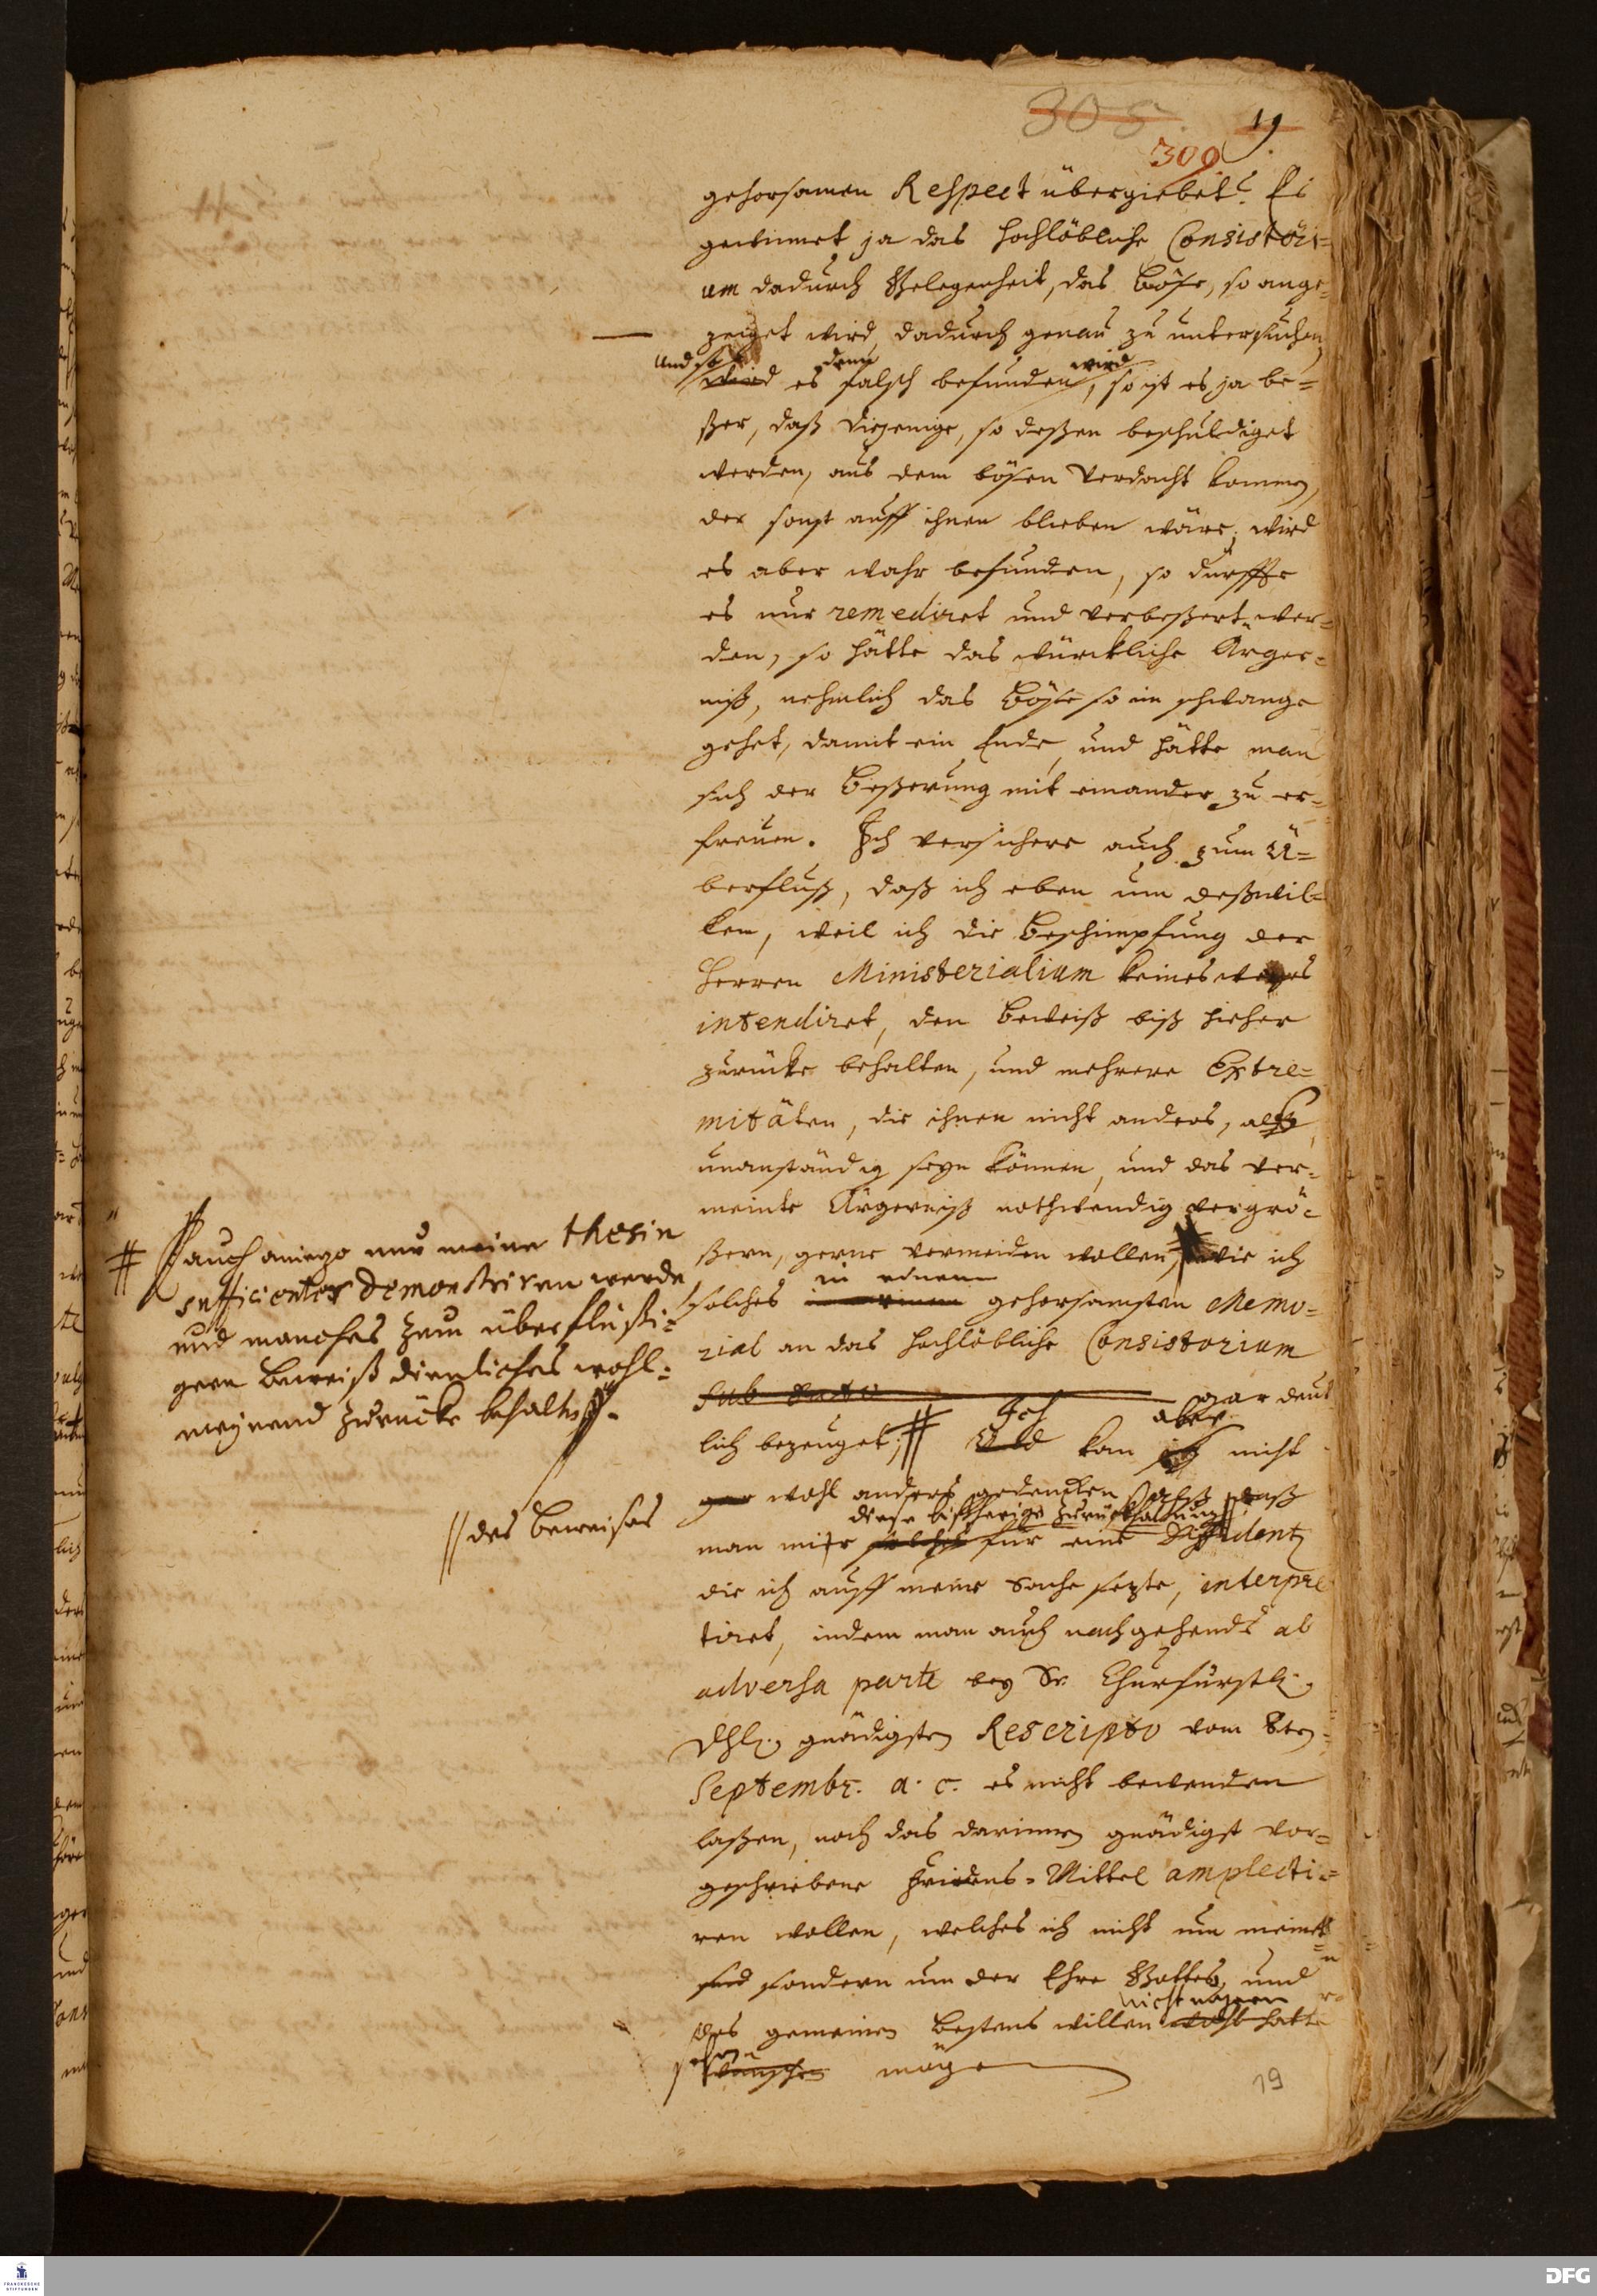 305.
19.
309
gehorsamen Respect übergiebet? Es
gewinnet ja das hochlöbliche Consistori=
um dadurch Gelegenheit, das Böse, so ange=
zeiget wird, dadurch genau zu untersuchen,
und so denn wird
wird es falsch befunden, so ist es ja be=
ßer, daß diejenige, so deßen beschuldiget
werden, aus dem bösen Verdacht kommen,
der sonst auff ihnen blieben wäre; wird
es aber wahr befunden, so dürffte
es nur remediret und verbeßert wer=
den, so hätte das würckliche Ärger=
niß, nehmlich das Böse so im schwange
gehet, damit ein Ende, und hätte man
sich der Beßerung mit einander zu er=
freuen. Ich versichere auch zum Ü=
berfluß, daß ich eben um deßwil=
len, weil ich die Beschimpfung der
Herren Ministerialium keines weges
intendiret, den Beweiß biß hieher
zurücke behalten, und mehrere Extre=
mitäten, die ihnen nicht anders, alß
unanständig seyn können, und das ver=
meinte Ärgerniß nothwendig vergrö=
ßern, gerne vermeiden wollen, wie ich
in einem
solches gehorsamsten Memo=
rial an das hochlöbliche Consistorium
sub dato gar deut
lich bezeuget; # Ich aber
Und kan ich nicht
gar wohl anders gedencken alß daß
diese bißherige Zurückhaltung //
man mir solches für eine Diffidentz
die ich auff meine Sache setzte, interpre
tiret, indem man auch nachgehends ab
adversa parte bey Sr. Churfürstl.
Dhl. gnädigsten Rescripto vom 8ten
Septembr. a. c. es nicht bewenden
laßen, noch das darinnen gnädigst vor=
geschriebene Friedens-Mittel amplecti=
ren wollen, welches ich nicht um meinet=
sondern um der Ehre Gottes, und
nicht
des gemeinen Bestens willen wohl hätte
sehen
wünschen mögen
19
# auch aniezo nur meine thesin
sufficienter demonstriren werde
und manches zum überflüßi=
gern Beweiß dienliches wohl=
meynend zurücke behalte.
// des Beweises
FRANCKESCHE
STIFTUNGEN
DFG